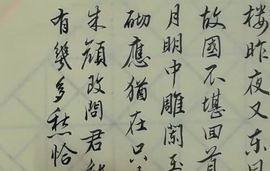 楼昨夜又东
故國不堪回首
月明中雕闌玉
砌應猶在只
朱顔改問君
有幾多愁恰